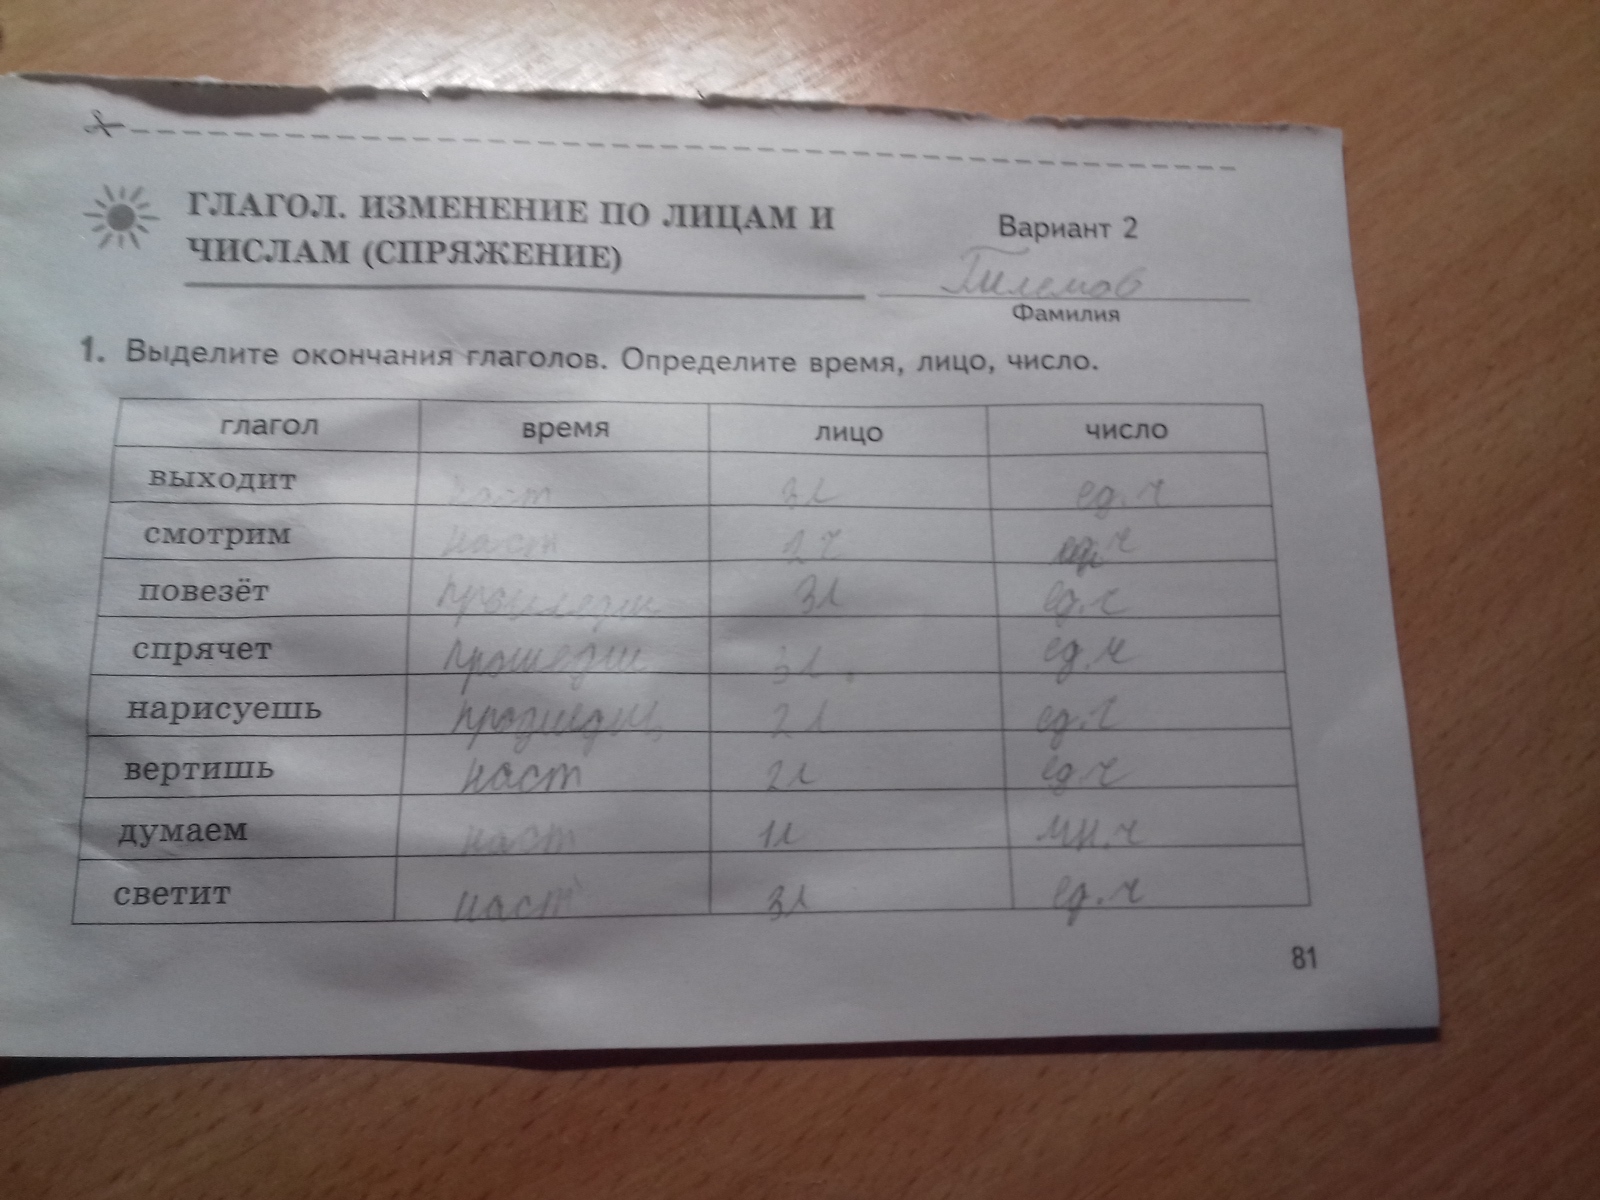 ГЛАГОЛ. ИЗМЕНЕНИЕ ПО ЛИЦАМ И
ЧИСЛАМ (СПРЯЖЕНИЕ)
Вариант 2
Фамилия
1. Выделите окончания глаголов. Определите время, лицо, число.
глагол время лицо число
выходит наст 3л ед.ч
смотрим наст 1 ч
повезёт 3л ед.ч
спрячет прошедш 3л. ед.ч
нарисуешь 2л ед.ч
вертишь наст 2л ед.ч
думаем наст 1л мн.ч
светит наст 3л ед.ч
81